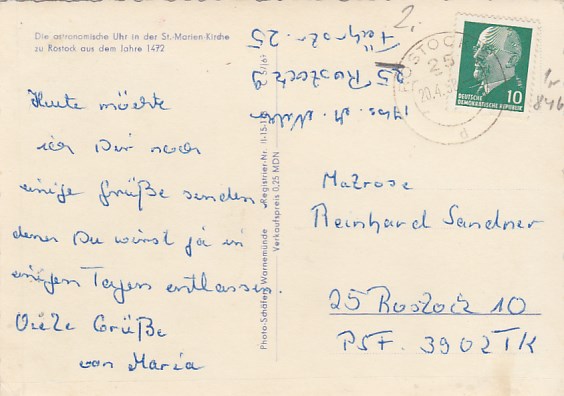 Die astronomische Uhr in der St.-Marien-Kirche
zu Rostock aus dem Jahre 1472
Heute möchte
ich Dir noch
einige Grüße senden,
denn Du wirst ja in
einigen Tagen entlassen.
Viele Grüße
von Maria
25 Rostock 2
2.
Photo-Schäfer, Warnemünde
Verkaufspreis 0,25 MDN
ROSTOCK
25
20.4.
d
10
DEUTSCHE
DEMOKRATISCHE REPUBLIK
846
Matrose
Reinhard Sandner
25 Rostock 10
PSF. 3902 TK